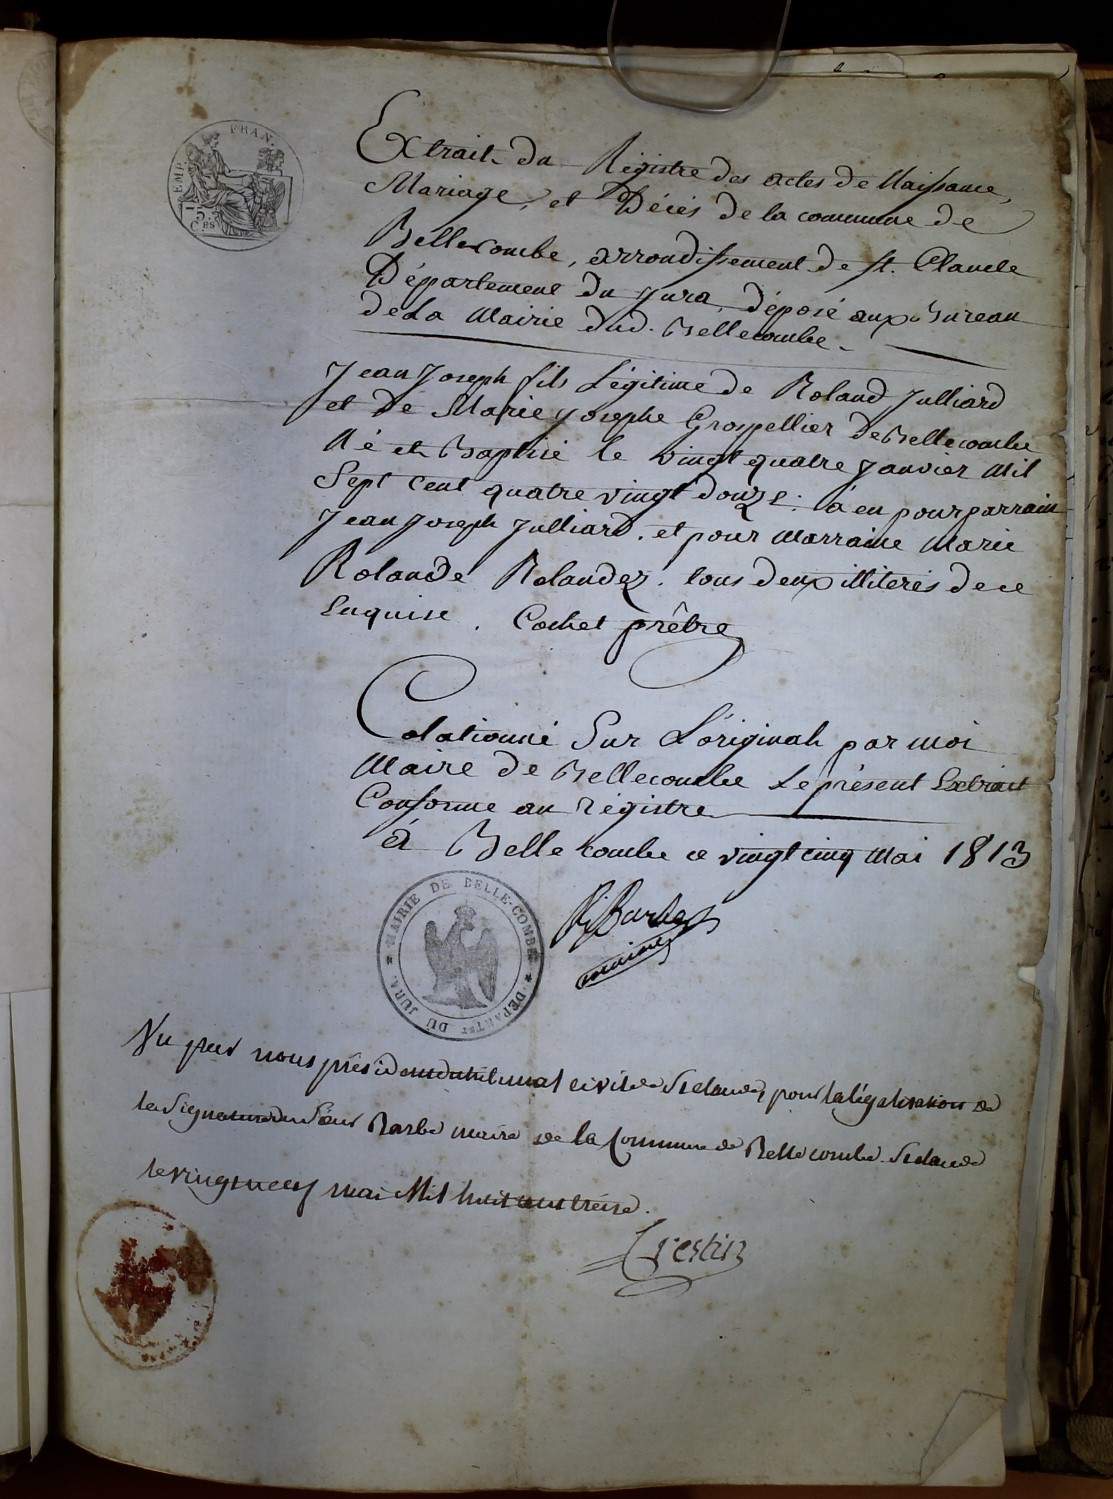 EMP. FRAN.
75
Ces
Extrait du Régistre des actes de Naissance,
Mariage, et Décès de la commune de
Bellecombe, arrondissement de st. Claude
Département du Jura, déposé aux Bureau
de La Mairie dud. Bellecombe.
Jean Joseph fils Légitime de Roland Julliard
et de Marie Josephe Grospellier de Bellecombe
Né et Baptisé le vingt quatre janvier mil
Sept Cent quatre vingt douze. à eu pour parrain
Jean Joseph Julliard. et pour Marraine Marie
Rolande Rolandez. tous deux illiterés de ce
Enquise. Cochet prêtre
Colationné Sur L'original par moi
Maire de Bellecombe Le présent Extrait
Conforme au régistre
à Belle combe ce vingt cinq Mai 1813
Barbe
maire
MAIRIE DE BELLE-COMBE
DEPARTNT DU JURA.
Vu par nous président du tribunal civil de St Claude, pour la légalisation de
la Signature du Sieur Barbe maire de la Commune de Bellecombe. St Claude
le vingt mai Mil huit cent treize.
Crestin